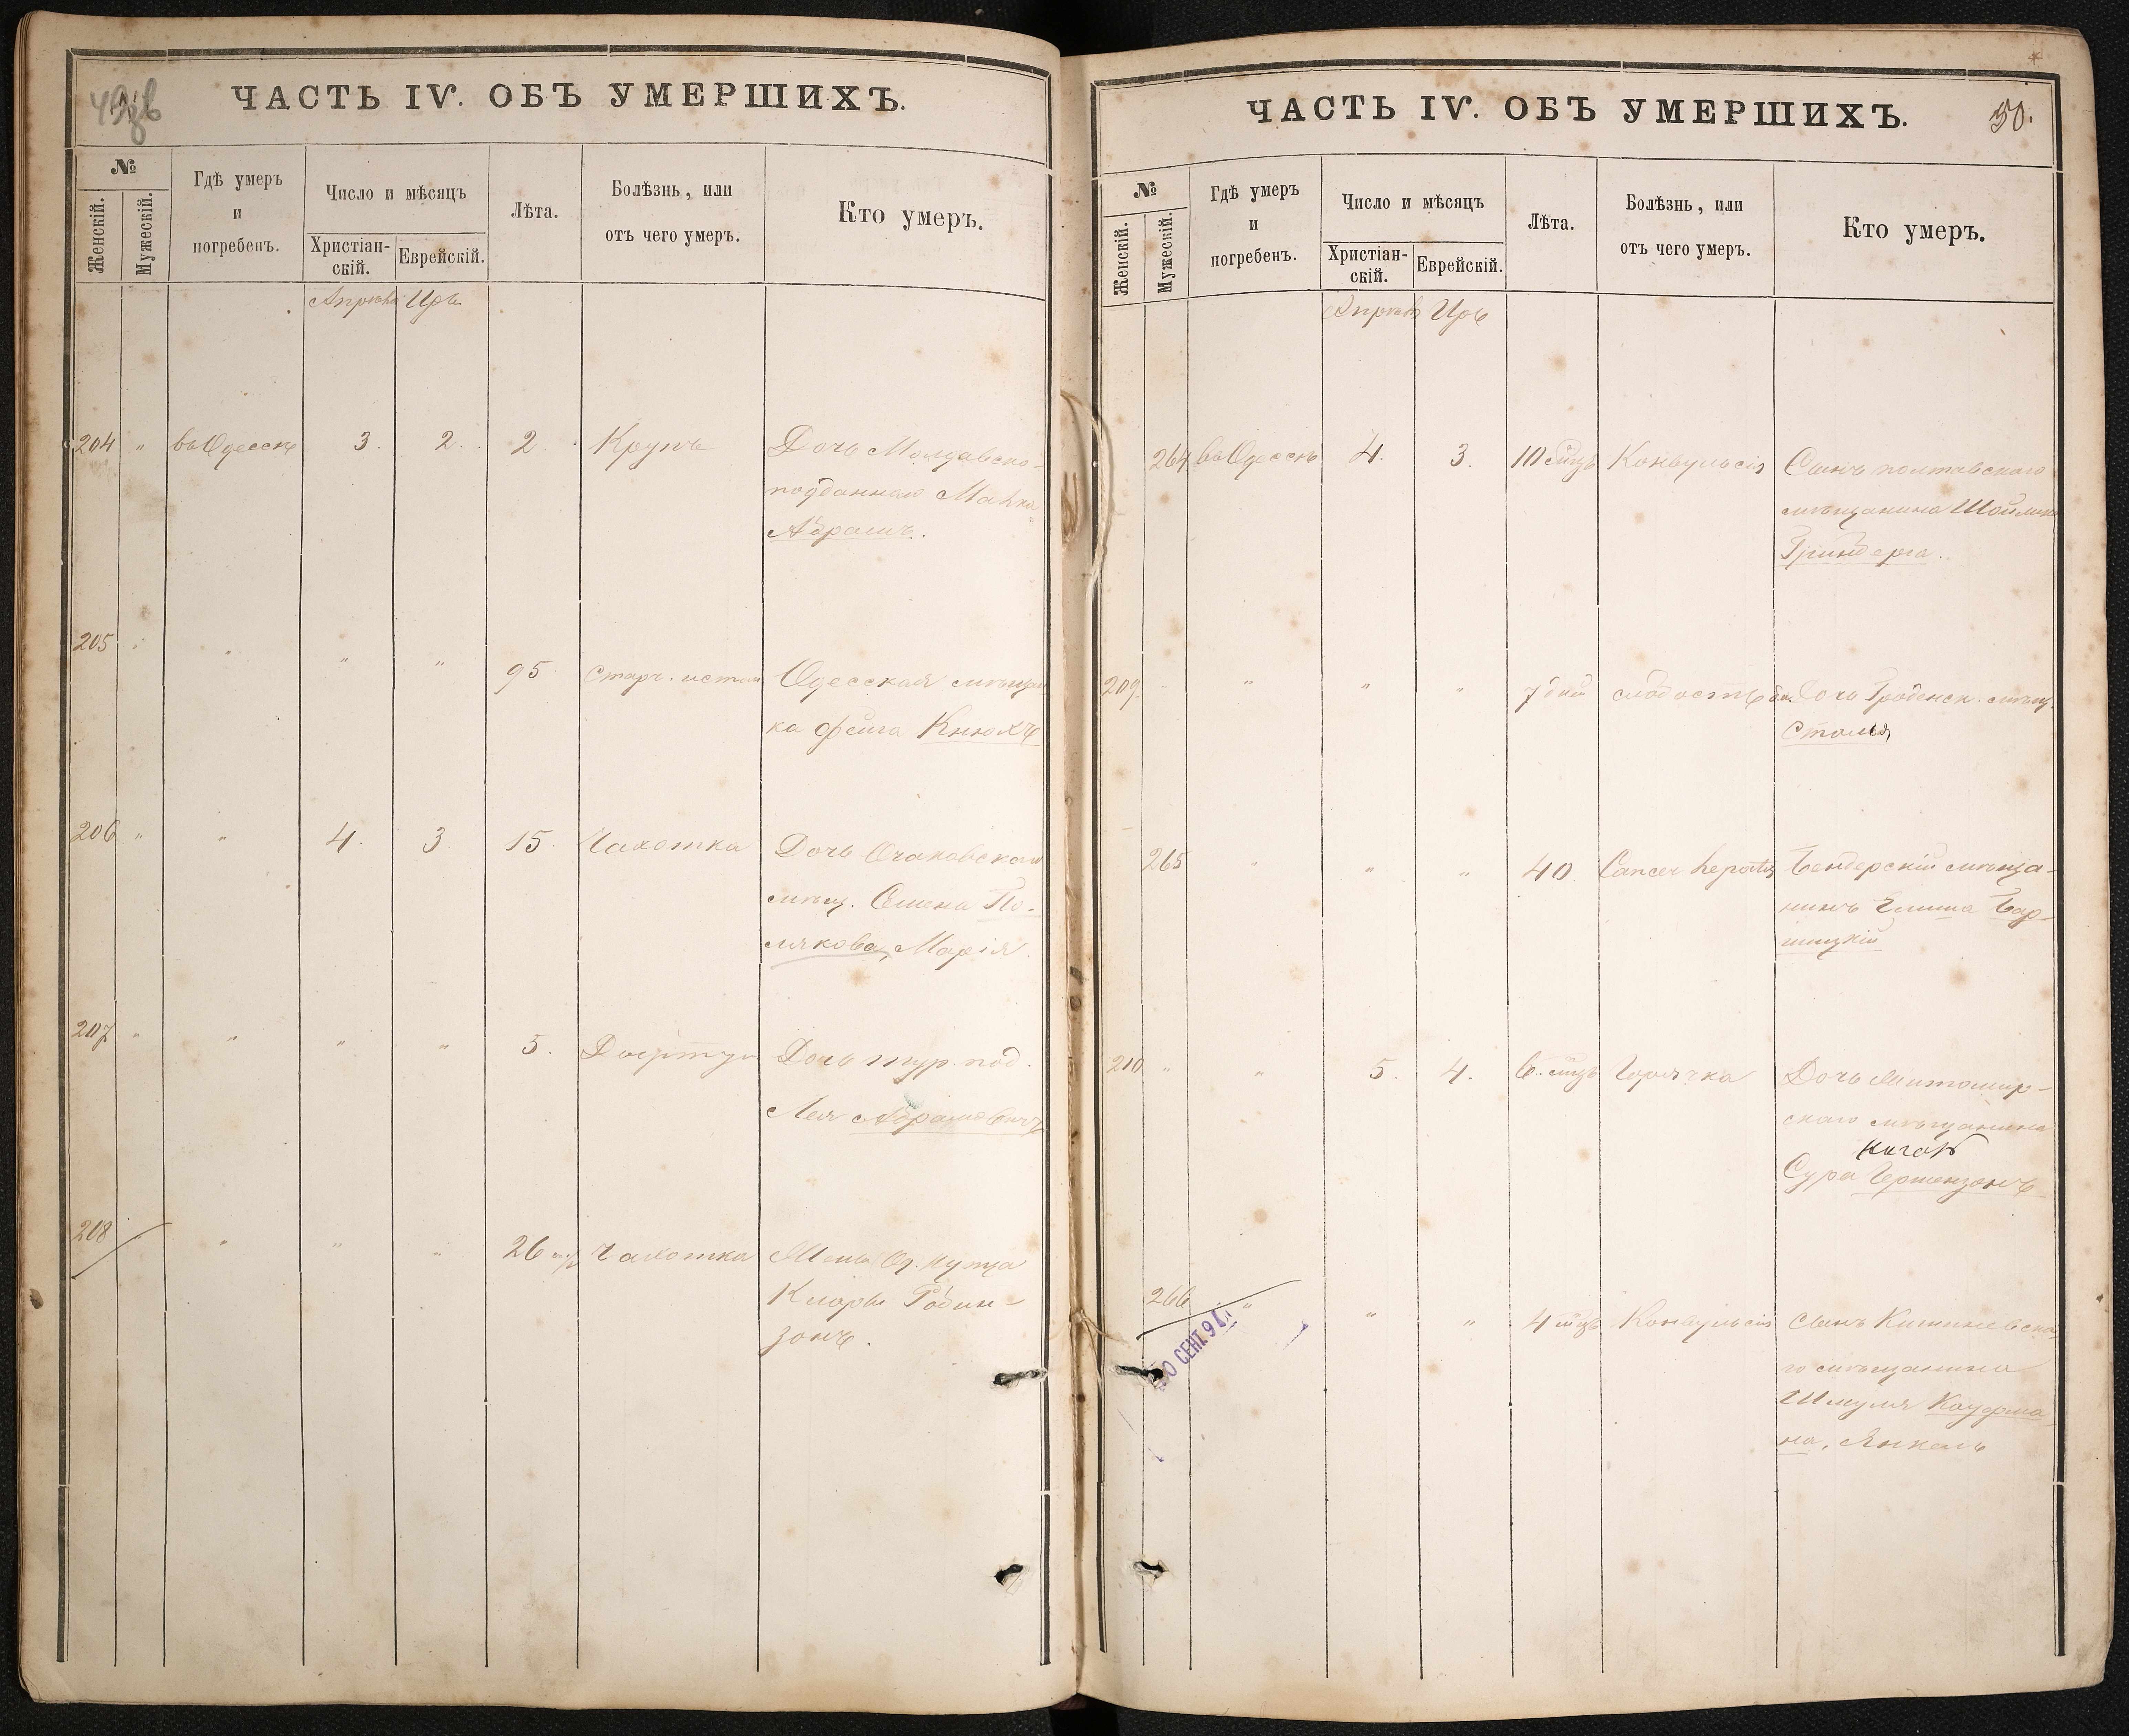 49 об
ЧАСТЬ IV. ОБЪ УМЕРШИХЪ.
№
Женскій.
Мужескій.
Гдѣ умеръ
и
погребенъ.
Число и мѣсяцъ
Христіан-
скій.
Еврейскій.
Лѣта.
Болѣзнь, или
отъ чего умеръ.
Кто умеръ.
Апрѣль Иръ
204 " въ Одессѣ 3. 2. 2. Крупъ Дочь Молдавско-
подданнаго Малка
Абрамъ.
205 " " " " 95 Старч. истощ Одесская мѣщан
ка Фейга Кнюхъ
206 " " 4. 3. 15. Чахотка Дочь Очаковскаго
мѣщ. Семена По-
лякова, Марія
207 " " " " 5. Дифтер Дочь тур. под.
Лея Абрамовичъ
208 " " " " 26 Чахотка Жена Од. купца
Клара Робин-
зонъ.
ЧАСТЬ IV. ОБЪ УМЕРШИХЪ.
50.
№
Женскій.
Мужескій.
Гдѣ умеръ
и
погребенъ.
Число и мѣсяцъ
Христіан-
скій.
Еврейскій.
Лѣта.
Болѣзнь, или
отъ чего умеръ.
Кто умеръ.
Апрѣль Иръ
264 въ Одессѣ 4. 3. 10 мцъ Конвульсія Сынъ полтавскаго
мѣщанина Шойлика
Гринберга.
209 " " " " 7 дней слабость Дочь Гродненск. мѣщ.
265 " " " 40 Cancer hepatis Бендерскій мѣща-
нинъ Бар-
шицкій
210 " " 5. 4. 6. мцъ Горячка Дочь Житомир-
скаго мѣщанина
Сура Гершензонъ
266 " " " 4 мцъ Конвульсія Сынъ Кишиневска-
го мѣщанина
Шмуля Кауфма-
на, Янкель
СЕНТ. 91